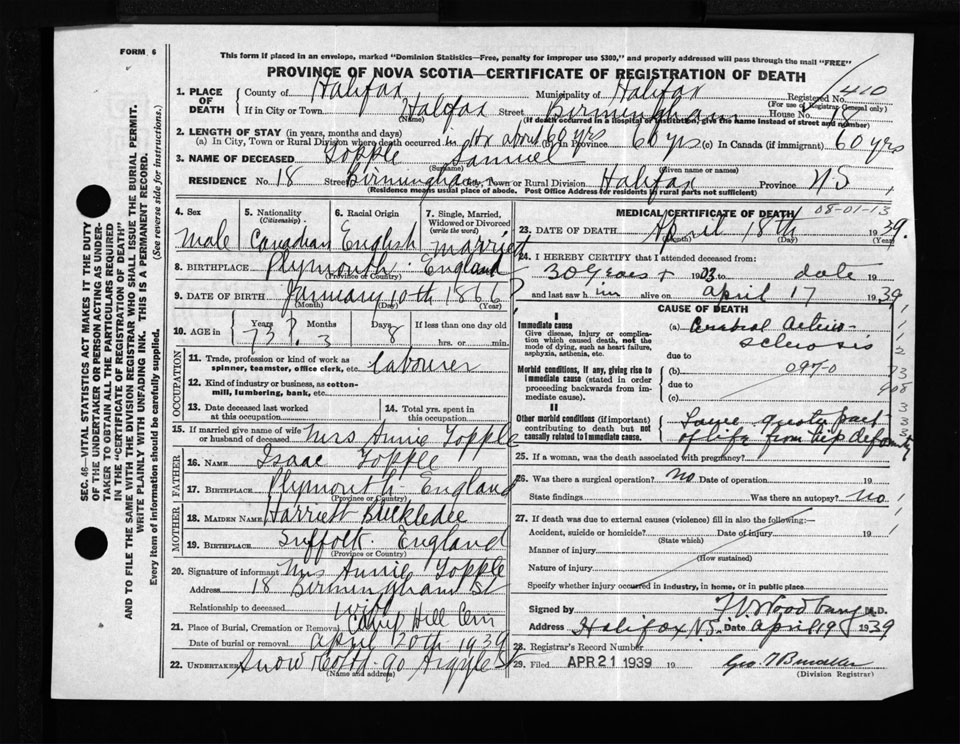 FORM 6
This form if placed in an envelope, marked "Dominion Statistics—Free, penalty for improper use $300," and properly addressed will pass through the mail "FREE"
PROVINCE OF NOVA SCOTIA—CERTIFICATE OF REGISTRATION OF DEATH
SEC. 46—VITAL STATISTICS ACT MAKES IT THE DUTY
OF THE UNDERTAKER OR PERSON ACTING AS UNDER-
TAKER TO OBTAIN ALL THE PARTICULARS REQUIRED
IN THE "CERTIFICATE OF REGISTRATION OF DEATH"
AND TO FILE THE SAME WITH THE DIVISION REGISTRAR WHO SHALL ISSUE THE BURIAL PERMIT.
WRITE PLAINLY WITH UNFADING INK. THIS IS A PERMANENT RECORD.
Every item of information should be carefully supplied. (See reverse side for instructions.)
1. PLACE OF DEATH County of Halifax Municipality of Halifax Registered No. 410
(For use of Registrar General only)
If in City or Town Halifax Street Birmingham House No. 18
(Name) (If death occurred in a hospital or institution, give the name instead of street and number)
2. LENGTH OF STAY (in years, months and days)
(a) In City, Town or Rural Division where death occurred in Hx 60 yrs (b) In Province 60 yrs (c) In Canada (if immigrant) 60 yrs
3. NAME OF DECEASED Topple Samuel
(Surname) (Given name or names)
RESIDENCE No. 18 Street Birmingham City, Town or Rural Division Halifax Province NS
(Residence means usual place of abode. Post Office Address for residents in rural parts not sufficient)
4. Sex
Male
5. Nationality (Citizenship)
Canadian
6. Racial Origin
English
7. Single, Married, Widowed or Divorced (write the word)
married
8. BIRTHPLACE Plymouth England
(Province or Country)
9. DATE OF BIRTH January 10th 1866
(Month) (Day) (Year)
10. AGE in Years 73 Months 3 Days 8 If less than one day old
hrs. or min.
OCCUPATION
11. Trade, profession or kind of work as spinner, teamster, office clerk, etc. labourer
12. Kind of industry or business, as cotton-mill, lumbering, bank, etc.
13. Date deceased last worked at this occupation
14. Total yrs. spent in this occupation
15. If married give name of wife or husband of deceased Mrs Annie Topple
FATHER
16. NAME Isaac Topple
17. BIRTHPLACE Plymouth England
(Province or Country)
MOTHER
18. MAIDEN NAME Harriett Buckledee
19. BIRTHPLACE Suffolk England
(Province or Country)
20. Signature of informant Mrs Annie Topple
Address 18 Birmingham St
Relationship to deceased wife
21. Place of Burial, Cremation or Removal Camp Hill Cem
Date of burial or removal April 20th 1939
22. UNDERTAKER Snow & Co Ltd 90 Argyle St
(Name and address)
MEDICAL CERTIFICATE OF DEATH
08-01-13
23. DATE OF DEATH April 18th 1939.
(Month) (Day) (Year)
24. I HEREBY CERTIFY that I attended deceased from:
30 years + 1903 to date 19
and last saw him alive on April 17 1939
CAUSE OF DEATH
I
Immediate cause
Give disease, injury or complication which caused death, not the mode of dying, such as heart failure, asphyxia, asthenia, etc.
(a) Cerebral Arterio-
sclerosis
due to
Morbid conditions, if any, giving rise to immediate cause (stated in order proceeding backwards from immediate cause).
(b) 097-0
due to
(c)
II
Other morbid conditions (if important) contributing to death but not causally related to immediate cause.
greater part
of life from hip deformity
25. If a woman, was the death associated with pregnancy?
26. Was there a surgical operation? no Date of operation 19
State findings Was there an autopsy? no
27. If death was due to external causes (violence) fill in also the following:—
Accident, suicide or homicide? Date of injury 19
(State which)
Manner of injury
(How sustained)
Nature of injury
Specify whether injury occurred in industry, in home, or in public place
Signed by Woodbury M.D.
Address Halifax N.S. Date April 19 1939
28. Registrar's Record Number
29. Filed APR 21 1939 19
(Division Registrar)